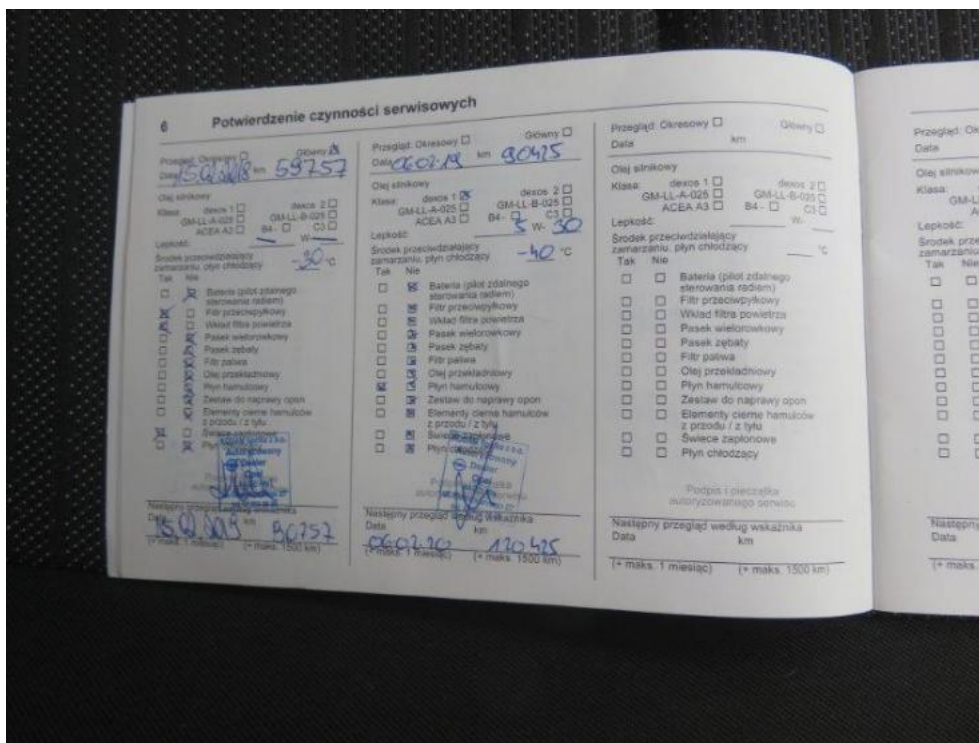 6 Potwierdzenie czynności serwisowych
Przegląd: Okresowy □ Główny ☒
Data 15.02.2018 km 59757
Olej silnikowy
Klasa: dexos 1 □ dexos 2 □
GM-LL-A-025 □ GM-LL-B-025 □
ACEA A3 □ B4 - □ C3 □
Lepkość: — W- —
Środek przeciwdziałający
zamarzaniu, płyn chłodzący -30 °C
Tak Nie
□ ☒ Bateria (pilot zdalnego
sterowania radiem)
☒ □ Filtr przeciwpyłkowy
☒ □ Wkład filtra powietrza
□ ☒ Pasek wielorowkowy
□ ☒ Pasek zębaty
□ ☒ Filtr paliwa
□ ☒ Olej przekładniowy
□ ☒ Płyn hamulcowy
□ ☒ Zestaw do naprawy opon
□ ☒ Elementy cierne hamulców
z przodu / z tyłu
☒ □ Świece zapłonowe
□ ☒ Płyn
Autoryzowany
Dealer
Opel
Następny przegląd według wskaźnika
Data km
15.02.2019 90757
(+ maks. 1 miesiąc) (+ maks. 1500 km)
Przegląd: Okresowy □ Główny □
Data 06.02.19 km 90425
Olej silnikowy
Klasa: dexos 1 ☒ dexos 2 □
GM-LL-A-025 □ GM-LL-B-025 □
ACEA A3 □ B4 - □ C3 □
Lepkość: 5 W- 30
Środek przeciwdziałający
zamarzaniu, płyn chłodzący -40 °C
Tak Nie
□ ☒ Bateria (pilot zdalnego
sterowania radiem)
□ ☒ Filtr przeciwpyłkowy
□ ☒ Wkład filtra powietrza
□ ☒ Pasek wielorowkowy
□ ☒ Pasek zębaty
□ ☒ Filtr paliwa
□ ☒ Olej przekładniowy
☒ ☒ Płyn hamulcowy
□ ☒ Zestaw do naprawy opon
□ ☒ Elementy cierne hamulców
z przodu / z tyłu
□ ☒ Świece zapłonowe
□ ☒ Płyn chłodzący
Dealer
Opel
Następny przegląd według wskaźnika
Data km
06.02.20 120425
(+ maks. 1 miesiąc) (+ maks. 1500 km)
Przegląd: Okresowy □ Główny □
Data km
Olej silnikowy
Klasa: dexos 1 □ dexos 2 □
GM-LL-A-025 □ GM-LL-B-025 □
ACEA A3 □ B4 - □ C3 □
Lepkość: W-
Środek przeciwdziałający
zamarzaniu, płyn chłodzący °C
Tak Nie
□ □ Bateria (pilot zdalnego
sterowania radiem)
□ □ Filtr przeciwpyłkowy
□ □ Wkład filtra powietrza
□ □ Pasek wielorowkowy
□ □ Pasek zębaty
□ □ Filtr paliwa
□ □ Olej przekładniowy
□ □ Płyn hamulcowy
□ □ Zestaw do naprawy opon
□ □ Elementy cierne hamulców
z przodu / z tyłu
□ □ Świece zapłonowe
□ □ Płyn chłodzący
Podpis i pieczątka
autoryzowanego serwisu
Następny przegląd według wskaźnika
Data km
(+ maks. 1 miesiąc) (+ maks. 1500 km)
Przegląd: O
Data
Olej silnikow
Klasa:
GM-L
Lepkość:
Środek prze
zamarzaniu
Tak Nie
Następn
Data
(+ maks.